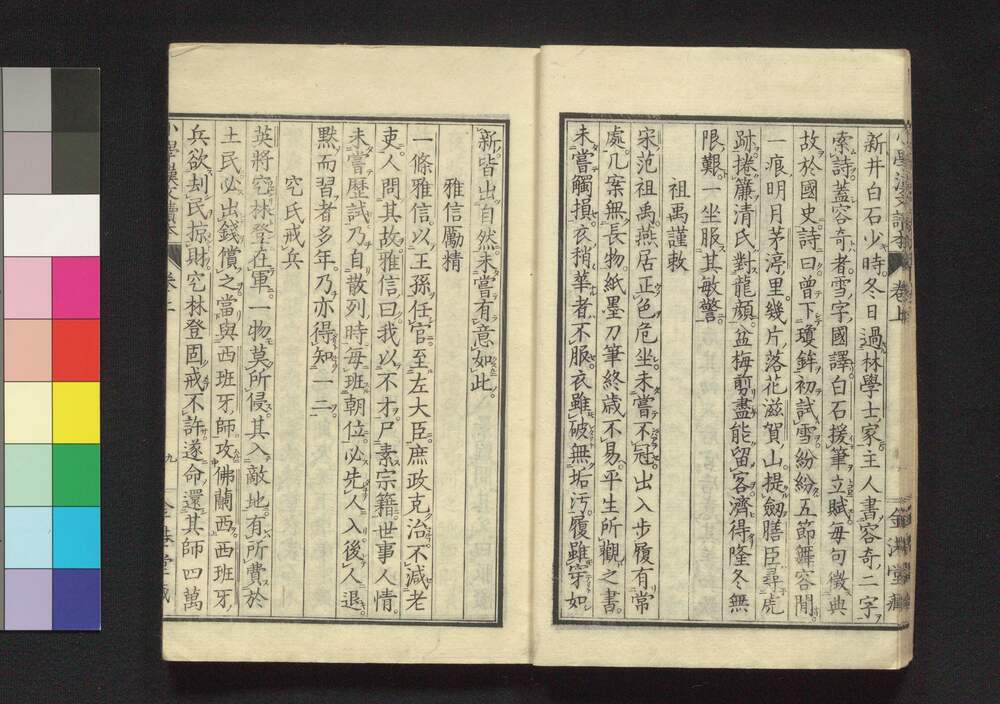 新井白石少時冬日過林學士家主人書容奇二字
索詩蓋容奇者雪字國譯白石援筆立賦每句徵典
故於國史詩曰曾下瓊鉾初試雪紛紛五節舞容閒
一痕明月茅渟里幾片落花滋賀山提劔膳臣尋虎
跡捲簾清氏對龍顔盆梅剪盡能留客濟得隆冬無
限艱一坐服其敏警
祖禹謹敕
宋范祖禹燕居正色危坐未嘗不冠出入步履有常
處几案無長物紙墨刀筆終歳不易平生所觀之書
未嘗觸損衣稍華者不服衣雖破無垢汚履雖穿如
新皆出自然未嘗有意如此
雅信勵精
一條雅信以王孫任官至左大臣庶政克治不減老
吏人問其故雅信曰我以不才尸素宗籍世事人情
未嘗歷試乃自散列時每班朝位必先人入後人退
默而習者多年乃亦得知一二
空氏戒兵
英將空林登在軍一物莫所侵其入敵地有所費於
土民必出錢償之當與西班牙師攻佛蘭西西班牙
兵欲刦民掠財空林登固戒不許遂命還其師四萬